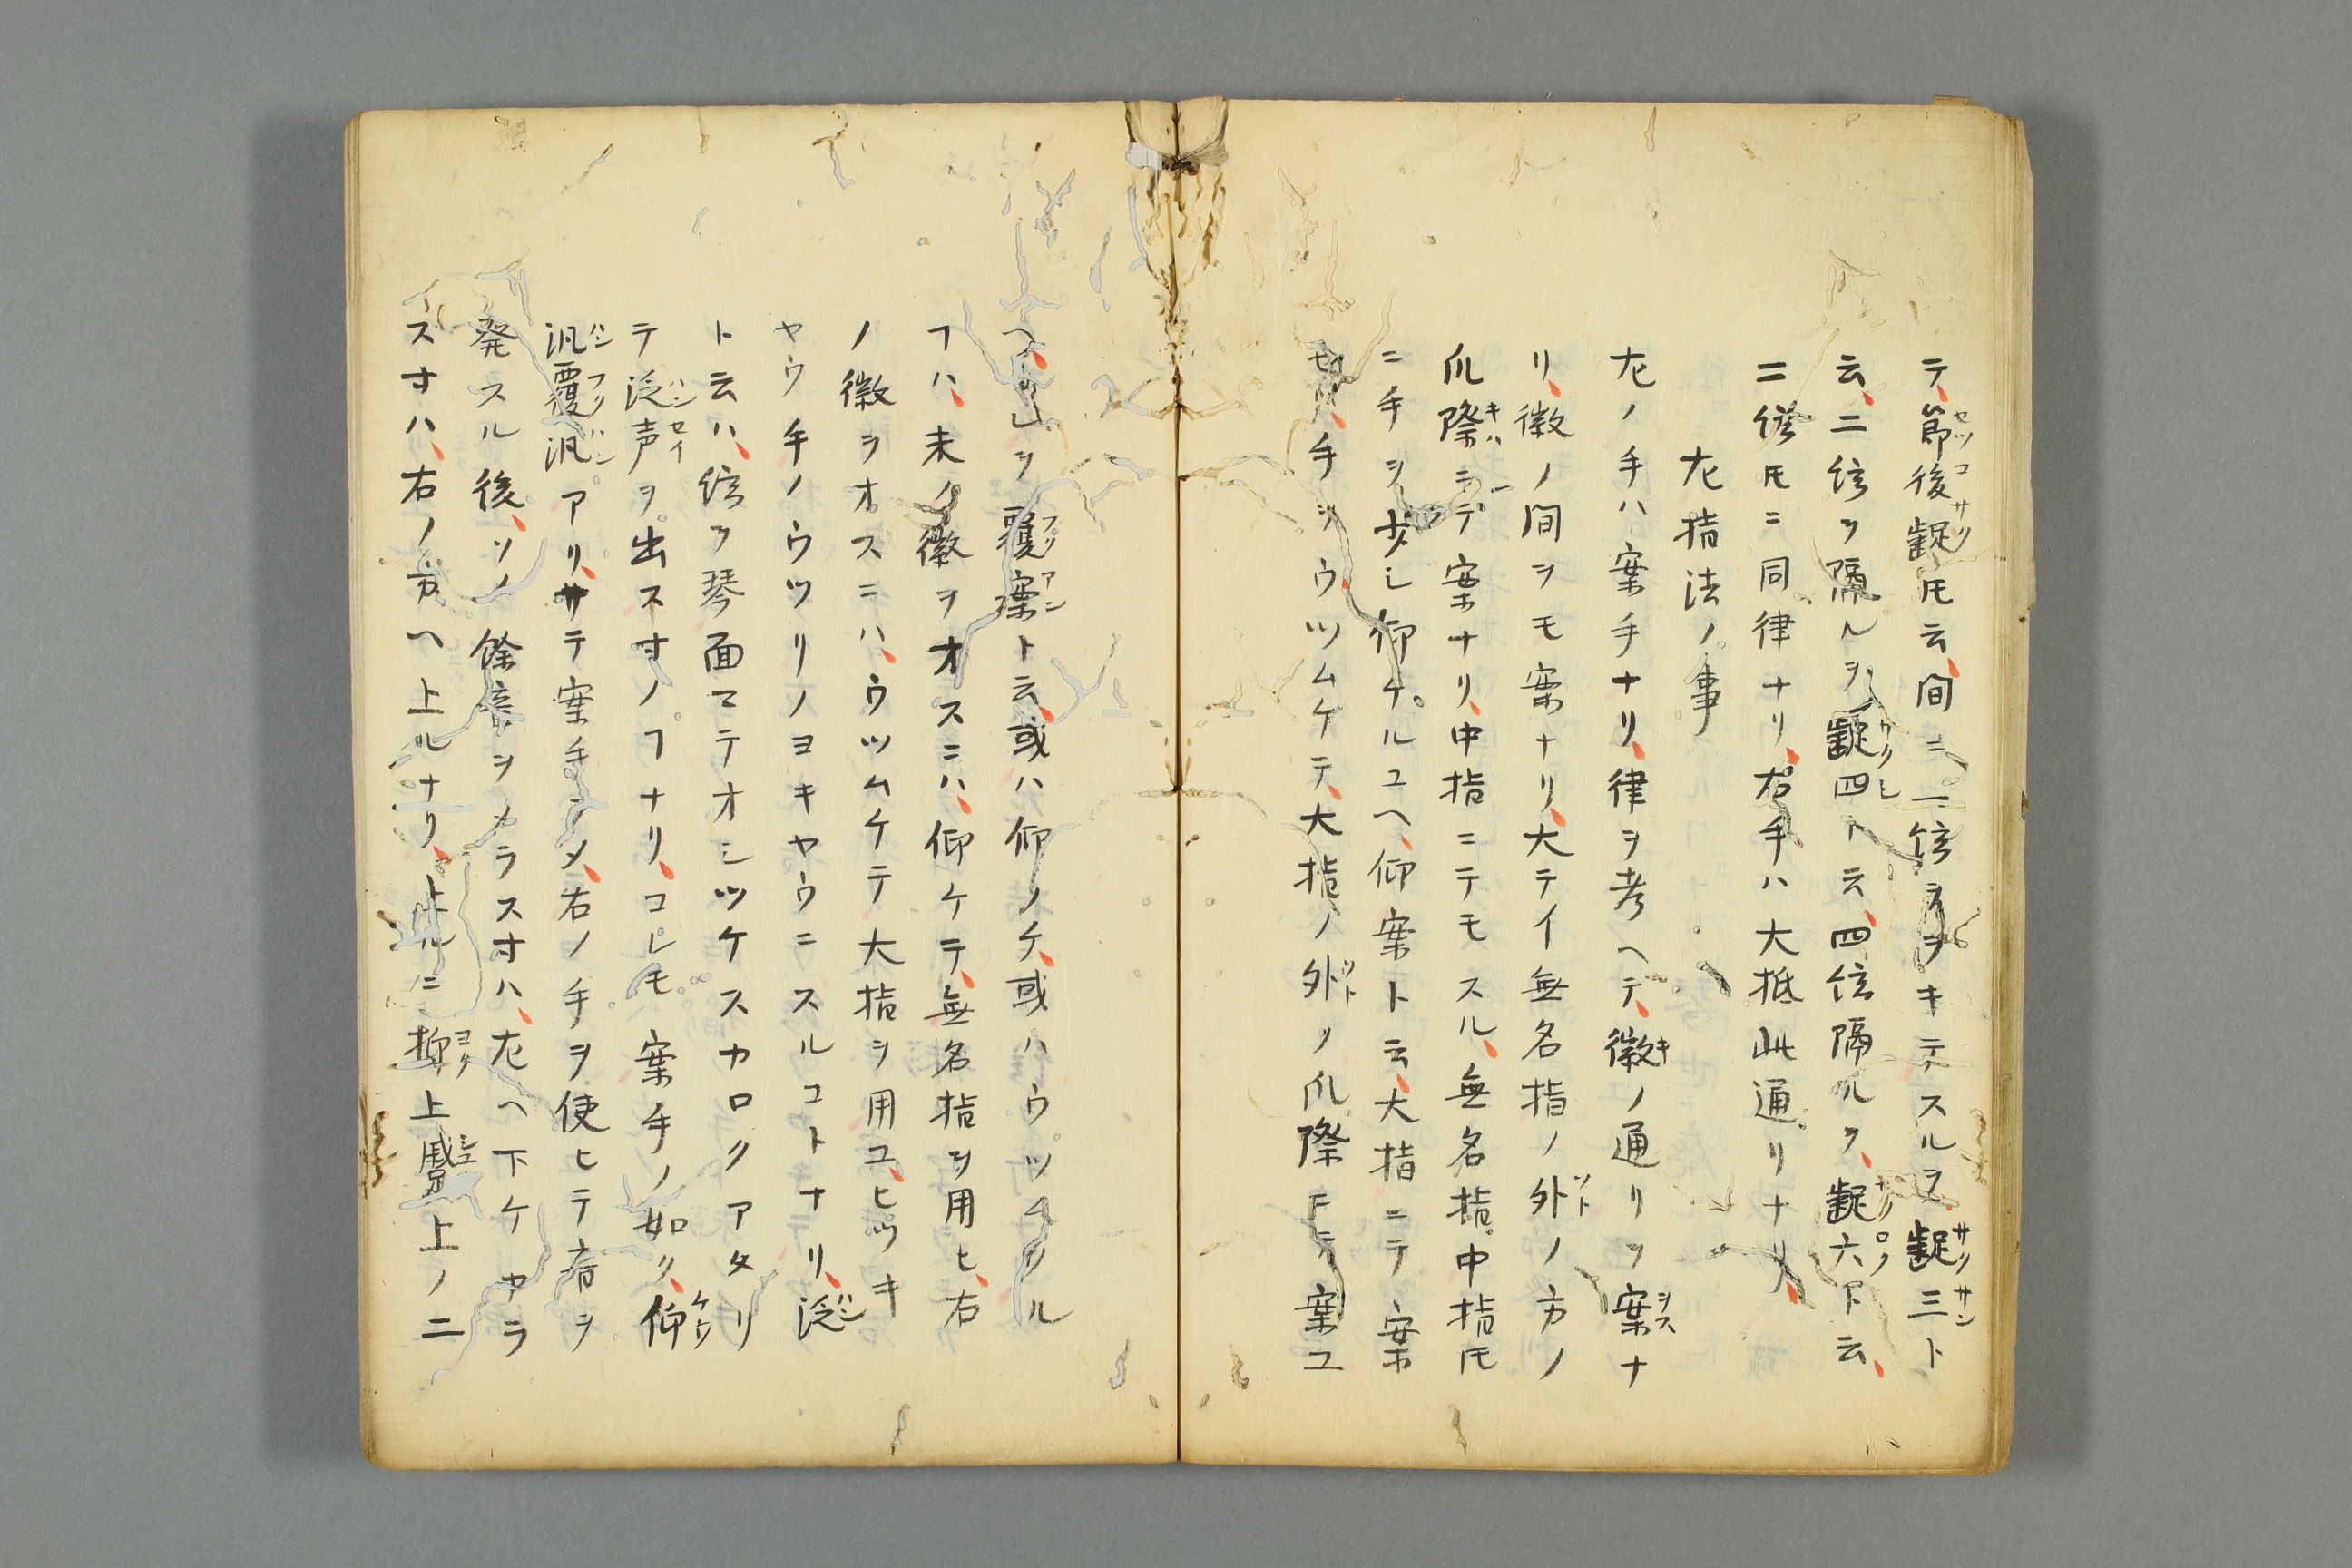 テ、節後齪𪜈云、間ニ一絃ヲヲキテスルヲ齪三ト
云、二絃ヲ隔ルヲ齪四ト云、四絃隔ルヲ、齪六ト云、
二絃𪜈ニ同律ナリ、右手ハ大抵此通リナリ、
左指法ノ事
左ノ手ハ案手ナリ、律ヲ考ヘテ、徽ノ通リヲ案ナ
リ、徽ノ間ヲモ案ナリ、大テイ無名指ノ外ノ方ノ
爪際ニテ案ナリ、中指ニテモスル、無名指中指𪜈
ニ手ヲ少シ仰ケルユヘ、仰案ト云、大指ニテ案
手ヲウツムケテ、大指ノ外ノ爪際ニテ案ユ
ヘ、ヲ覆案ト云、或ハ仰ノケ、或ハウツムクル
フハ、末ノ徽ヲオスニハ、仰ケテ、無名指ヲ用ヒ、右
ノ徽ヲオスニハ、ウツムケテ大指ヲ用ユ、ヒツキ
ヤウ手ノウツリノヨキヤウニスルコトナリ、泛
ト云ハ、絃ヲ琴面マテオシツケスカロクアタリ
テ泛声ヲ出ス寸ノフナリ、コレモ案手ノ如ク、仰
汎覆汎アリ、サテ案手シメ、右ノ手ヲ使ヒテ音ヲ
発スル後、ソノ餘音ヲメラス寸ハ、左ヘ下ケカラ
ス寸ハ、右ノ方ヘ上ルナリ、上ルニ抑上蹙上ノ二